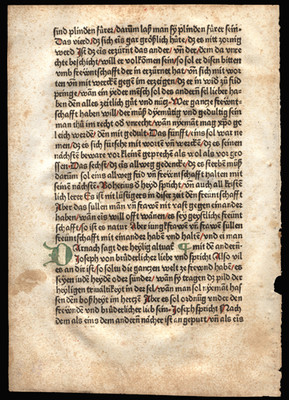 sind plinden fürer/ darum laß man sy plinden fürer sein
Das vierd/ dz sich eis gar größlich hüte/ dz es nitt zornig
werd Jst dz eis erzürnt das ander/ vñ der/ dem da vnre
cht beschicht/ will er volkomen sein/ so sol er disen bitten
vmb freüntschafft der in erzürnet hat/ vñ sich mit wor
ten vñ mit wercken gegen im erzeigen/ dz er im wid zů frid
pringe/ wañ ein yeder mẽsch sol des andern sel lieber ha
ben den alles zeitlich gůt vnd nücz Wer gancze freünt
schafft haben will der můß dyemütig vnd gedultig sein
man thů im recht od vnrecht/ wañ nyemãt mag yed ge
leich werdẽ/ den mit gedult Das fünfft/ eins sol war ne
men/ dz es sich fürsehe mit wortẽ vñ wercken/ dz es seinen
nächsten beware vor kleinẽ geprechẽ als wol als vor gro
ssen Das sechst/ dz eis allweg gedenck/ dz es sterbẽ müß
darum sol eins allweg frid vñ freüntschafft halten mit
seinẽ nächstẽ Boherius d heyd spricht/ vñ auch all krist
lich lerer Es ist nit lüstigers in diser zeit deñ freüntschafft
Aber das sullen man vñ frawẽ nit vast gegen einander
haben/ wañ eis will offt wänen/ es sey geystliche freünt
schafft/ so ist es natur Aber iungfrawẽ vñ frawẽ sullen
freüntschafft mit einander habẽ vnd halten/ vnd ein man
Darnach sagt der heylig altuater mit dẽ anderñ
Joseph von brüderlicher liebe vnd spricht Also vil
es an dir ist/ so soltu die ganczen welt ze freünd habẽ/ es
seyen iudẽ heydẽ oder sunder/ wañ sy tragen dz pild der
heyligen triualtikeyt in der sel/ wañ man sol nyemãt haf
sen den boßheyt im hercze Aber es sol ordnüg vnder den
freündẽ vnd brüderlicher lieb sein Joseph spricht Nach
dem als eins dem andern nächer ist angepurt/ vñ als eis